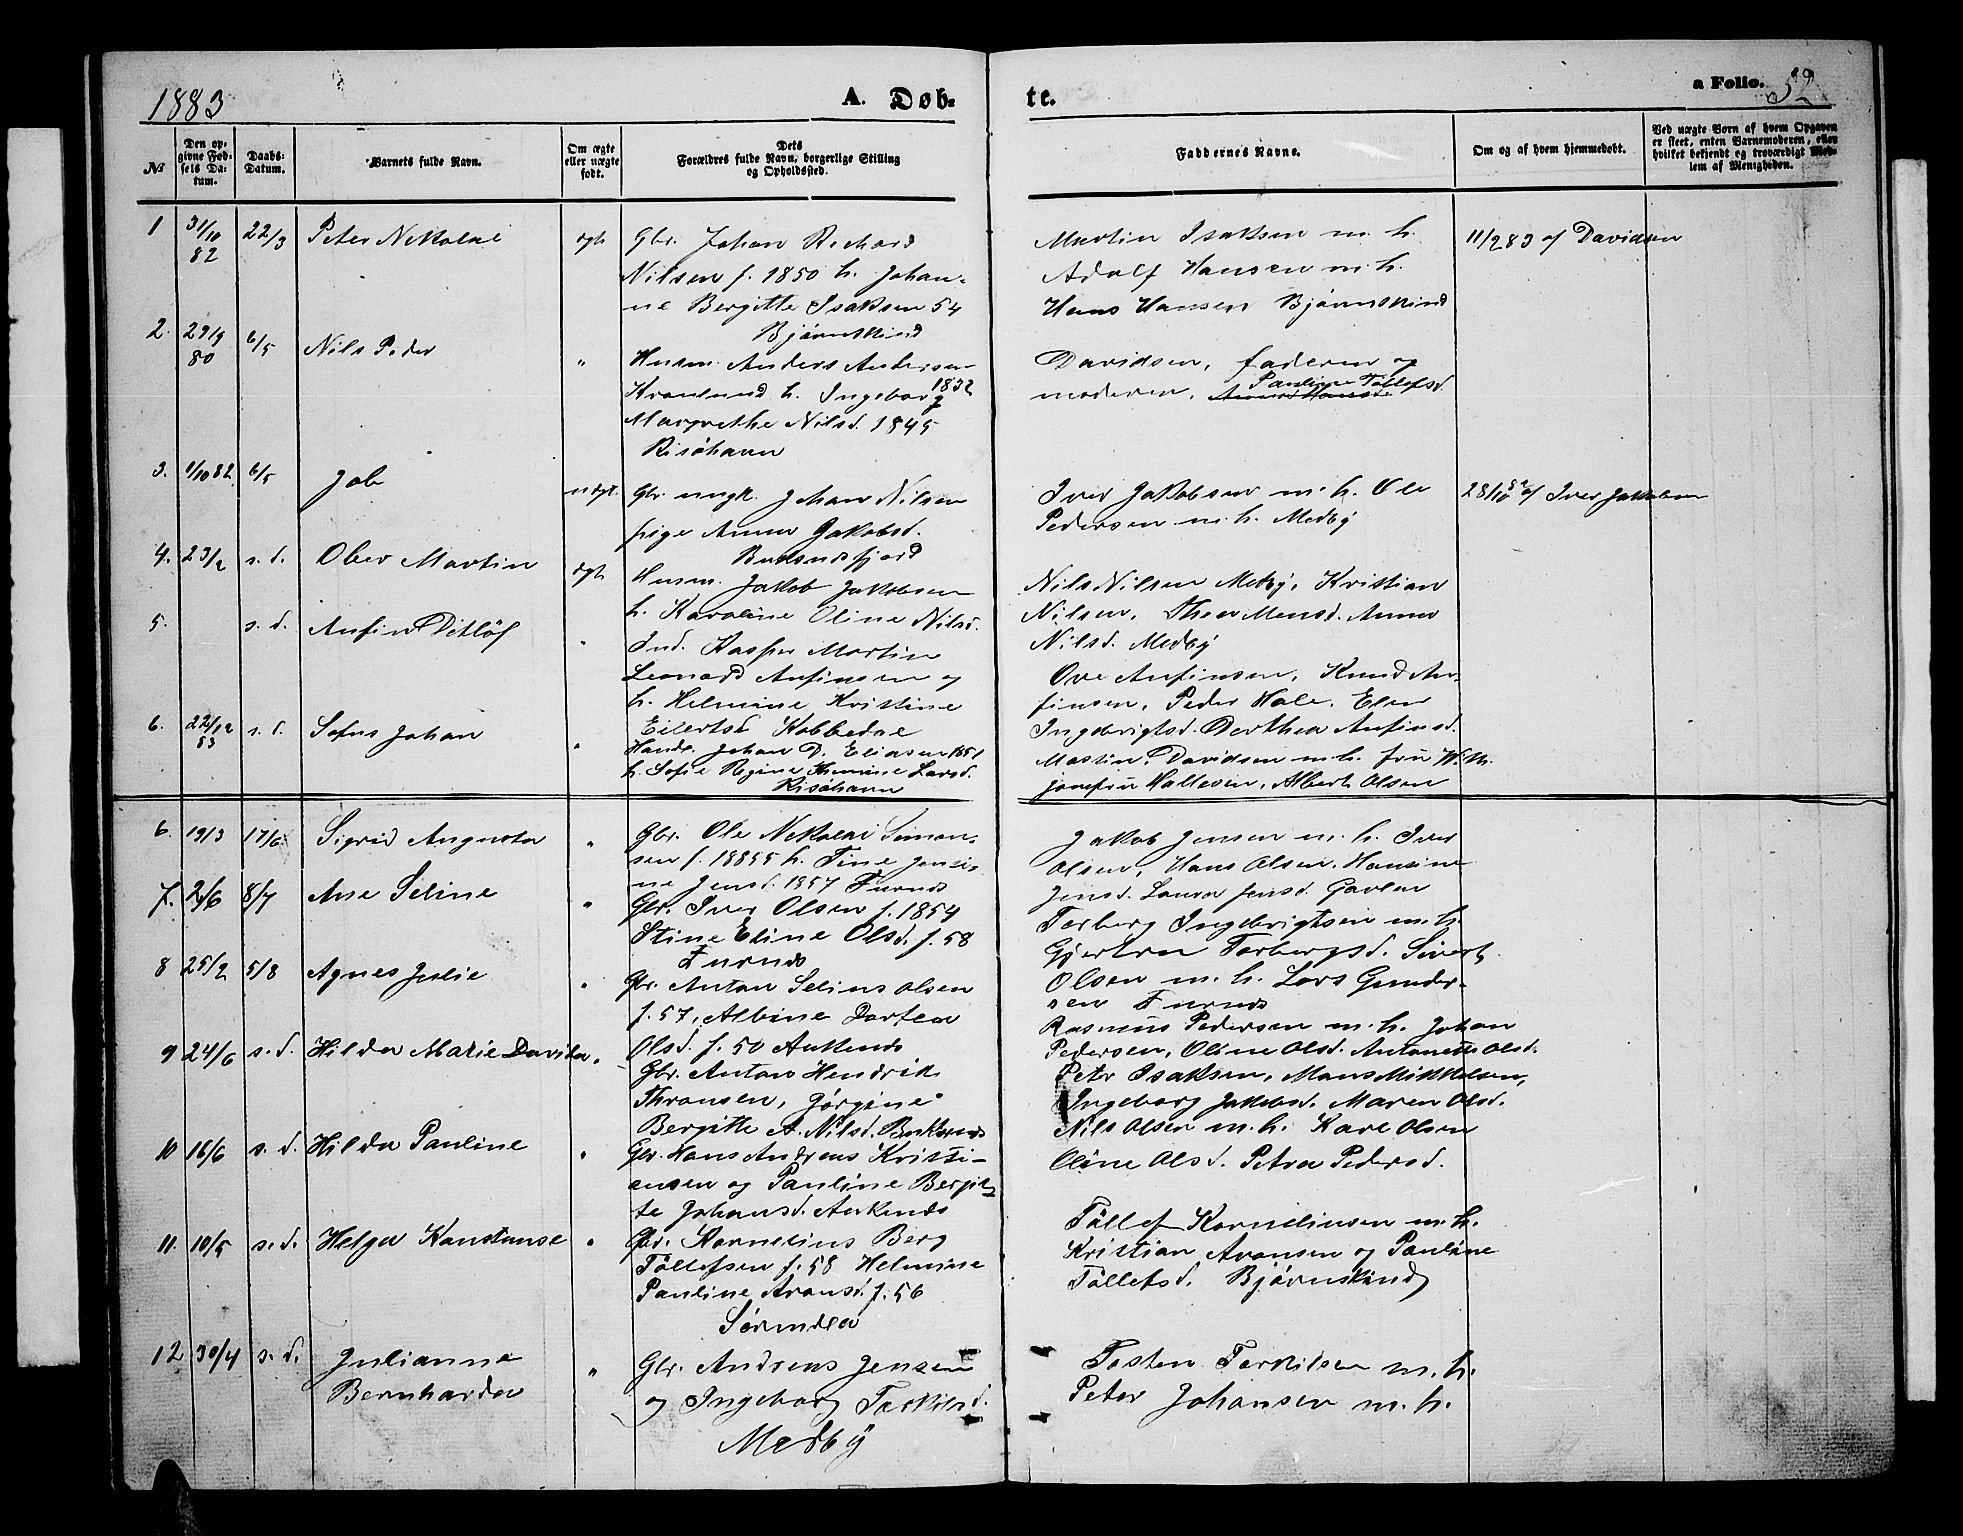 1883
A. Døb-
te.
a Folio. 52
№
Den op-
givne Fød-
sels Da-
tum.
Daabs-
Datum.
Barnets fulde Navn.
Om ægte
eller uægte
født.
Dets
Forældres fulde Navn, borgerlige Stilling
og Opholdssted.
Faddernes Navne.
Om og af hvem hjemmedøbt.
Ved uægte Børn af hvem Opgaven
er skeet, enten Barnemoderen, eller
hvilket bekjendt og troværdigt Med-
lem af Menigheden.
1 31/10 82 22/3 Peter Nikolai ægt Gbr. Johan Richard
Nilsen f. 1850 h. Johan-
ne Bergitte Isaksen 54
Bjørnskind
Martin Isaksen m. h.
Adolf Hansen m. h.
Hans Hansen Bjørnskind
11/2 83 af Davidsen
2. 29/9 80 6/5 Nils Peder " Husm. Anders Andersen
Kranlund h. Ingeborg 1832
Margrethe Nilsd. 1845
Risøhavn
Davidsen, faderen og
moderen, Pauline Tollefsd.
3. 1/10 82. 6/5 Job uægt. Gbr. ungk. Johan Nilsen
pige Anna Jakobsd.
Buksnesfjord
Iver Jakobsen m. h. Ole
Pedersen m. h. Medby
28/10 82 af Iver Jakobsen
4. 23/2 s. d. Ober Martin ægt Husm. Jakob Jakobsen
h. Karoline Oline Nilsd.
Nils Nilsen Medby, Kristian
Nilsen, Thea Monsd. Anna
Nilsd. Medby
5. s. d. Anfin Ditløf " Ind. Kasper Martin
Leonard Anfinsen og
h. Helmine Kristine
Eilertsd Kobbedal
Ove Anfinsen, Knud An-
finsen, Peder Hole, Elen
Ingebrigtsd. Dorthea Anfinsd.
6. 22/12 83 s. d. Sofus Johan " Handr. Johan D. Eliasen 1851
h. Sofie Regine Hermine Larsd.
Risøhavn
Martin Davidsen m. h. fru
Josefin Hallesen, Albert Olsen
6. 19/3 17/6 Sigrid Augusta " Gbr. Ole Nikolai Simon-
sen f. 18855 h. Tine Jensi-
ne Jensd. 1857 Furnes
Jakob Jensen m. h. Iver
Olsen, Hans Olsen, Hansine
Jensd. Laura Jensd. Gavlen
7. 2/6 8/7 Ane Seline " Gbr. Iver Olsen f. 1854
Stine Eline Olsd. f. 58
Furnes
Torberg Ingebrigtsen m. h.
Gjertru Torbergsd. Sivert
Olsen m. h. Lars Gunder-
sen Furnes
8 25/2 5/8 Agnes Julie " Gbr. Anton Selius Olsen
f. 57, Albine Dortea
Olsd. f. 50 Aaknes
Rasmus Pedersen m. h. Johan
Pedersen, Oline Olsd. Antonette Olsd.
9 24/6 s. d. Hilda Marie Davida " Gbr. Anton Hendrik
Thronsen, Jørgine
Bergitte A. Nilsd. Buksnes
Peter Isaksen, Mons Mikkelsen,
Ingeborg Jakobsd. Maren Olsd.
10 16/6 s. d. Hilda Pauline " Gbr. Hans Andreas Kristi-
ansen og Pauline Bergit-
te Johansd. Aaknes
Nils Olsen m. h. Karl Olsen
Oline Olsd. Petra Pedersd.
11. 10/5 s. d. Helga Konstanse " Gbr. Kornelius Berg
Tollefsen f. 58 Helmine
Pauline Aronsd. f. 56
Sørmela
Tollef Korneliusen m. h.
Kristian Aronsen og Pauline
Tollefsd. Bjørnskind
12 30/4 s. d. Julianna
Bernharda " Gbr. Andreas Jensen
og Ingeborg Torkilsd.
Medby
Tosten Torkilsen m. h.
Peter Johansen m. h.